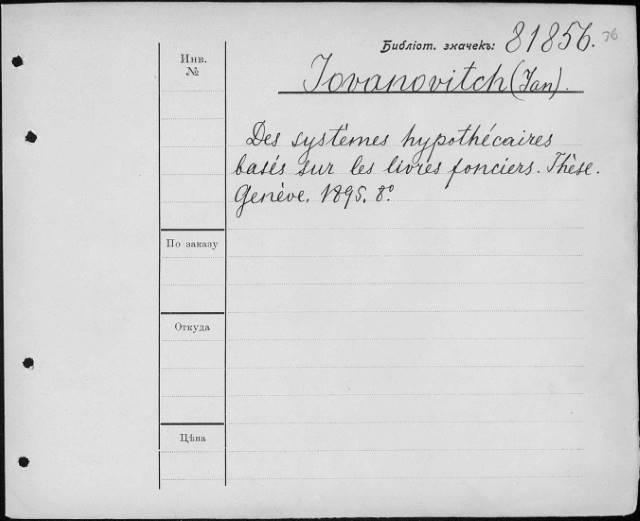 Библіот. значекъ: 81856. 36
Iovanovitch (Jan).
Инв.
№
Des systèmes hypothécaires
basés sur les livres fonciers. Thèse.
Genève. 1895. 8º.
По заказу
Откуда
Цѣна